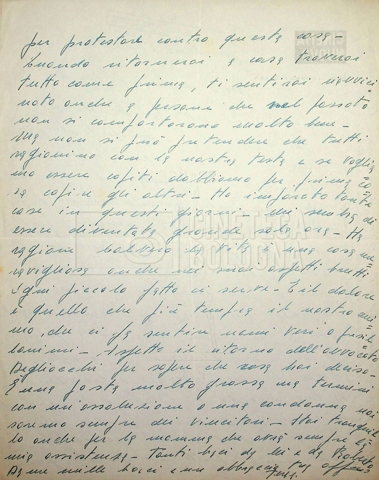 per protestare contro questa cosa –
Quando ritornerai a casa troverai
tutto come prima, ti sentirai riavvici
nato anche a persone che nel passato
non si comportarono molto bene –
Ma non si può pretendere che tutti
ragionino con la nostra testa e se voglia
mo essere capiti dobbiamo per primi co
sa capire gli altri – Ho imparato tante
cose in questi giorni – Mi sembra di
essere diventata grande solo ora – Ha
ragione la vita è una cosa me
ravigliosa anche nei suoi aspetti brutti
Ogni piccolo fatto ci serve – E il dolore
è quello che più tempra il nostro ani
mo, che ci fa sentire uomini veri o fusil
lanimi – Aspetto il ritorno dell'avvocato
per sapere che cosa hai deciso –
È una posta molto grossa ma termini
con un'assoluzione o una condanna noi
saremo sempre dei vincitori – Stai tranquil
lo anche per la mamma che avrà sempre la
mia assistenza – Tanti baci da lei e da
Da me mille baci e un abbraccio